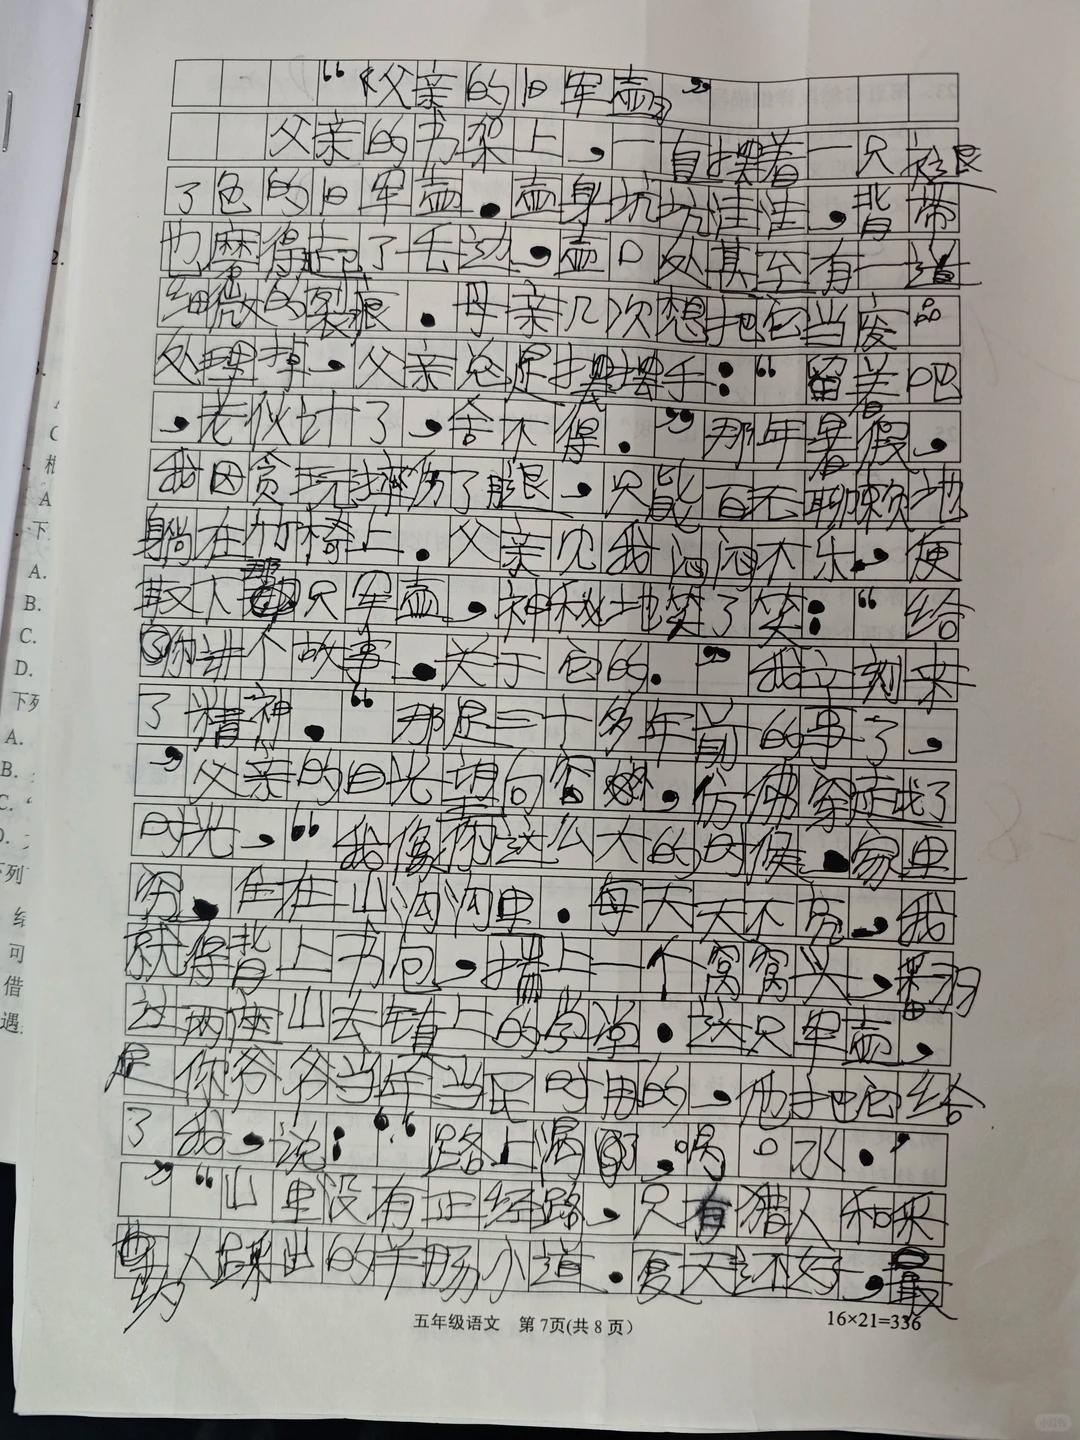 “父亲的旧军壶”
父亲的书架上，一直摆着一只褪
了色的旧军壶。壶身坑坑洼洼，背带
也磨得起了毛边，壶口处甚至有一道
细微的裂痕。母亲几次想把它当废品
处理掉，父亲总是摆摆手：“留着吧
，老伙计了，舍不得。”那年暑假，
我因贪玩摔伤了腿，只能百无聊赖地
躺在竹椅上。父亲见我闷闷不乐，便
取下那只军壶，神秘地笑了笑：“给
你讲个故事，关于它的。”我立刻来
了精神。“那是三十多年前的事了，
”父亲的目光望向窗外，仿佛穿越了
时光，“我像你这么大的时候，家里
穷，住在山沟沟里。每天天不亮，我
就得背上书包，揣上一个窝窝头，翻
过两座山去镇上的学堂。这只军壶，
是你爷爷当年当民时用的，他把它给
了我，说：‘“路上渴了，喝口水。’
”“山里没有正经路，只有猎人和采
人踩出的羊肠小道。夏天还好，最
五年级语文 第7页(共8页)
16×21=336
1
2.
A
C
A
下
A.
B.
C.
D.
下列
A.
B.
C.
下列
可
借
遇
小红书